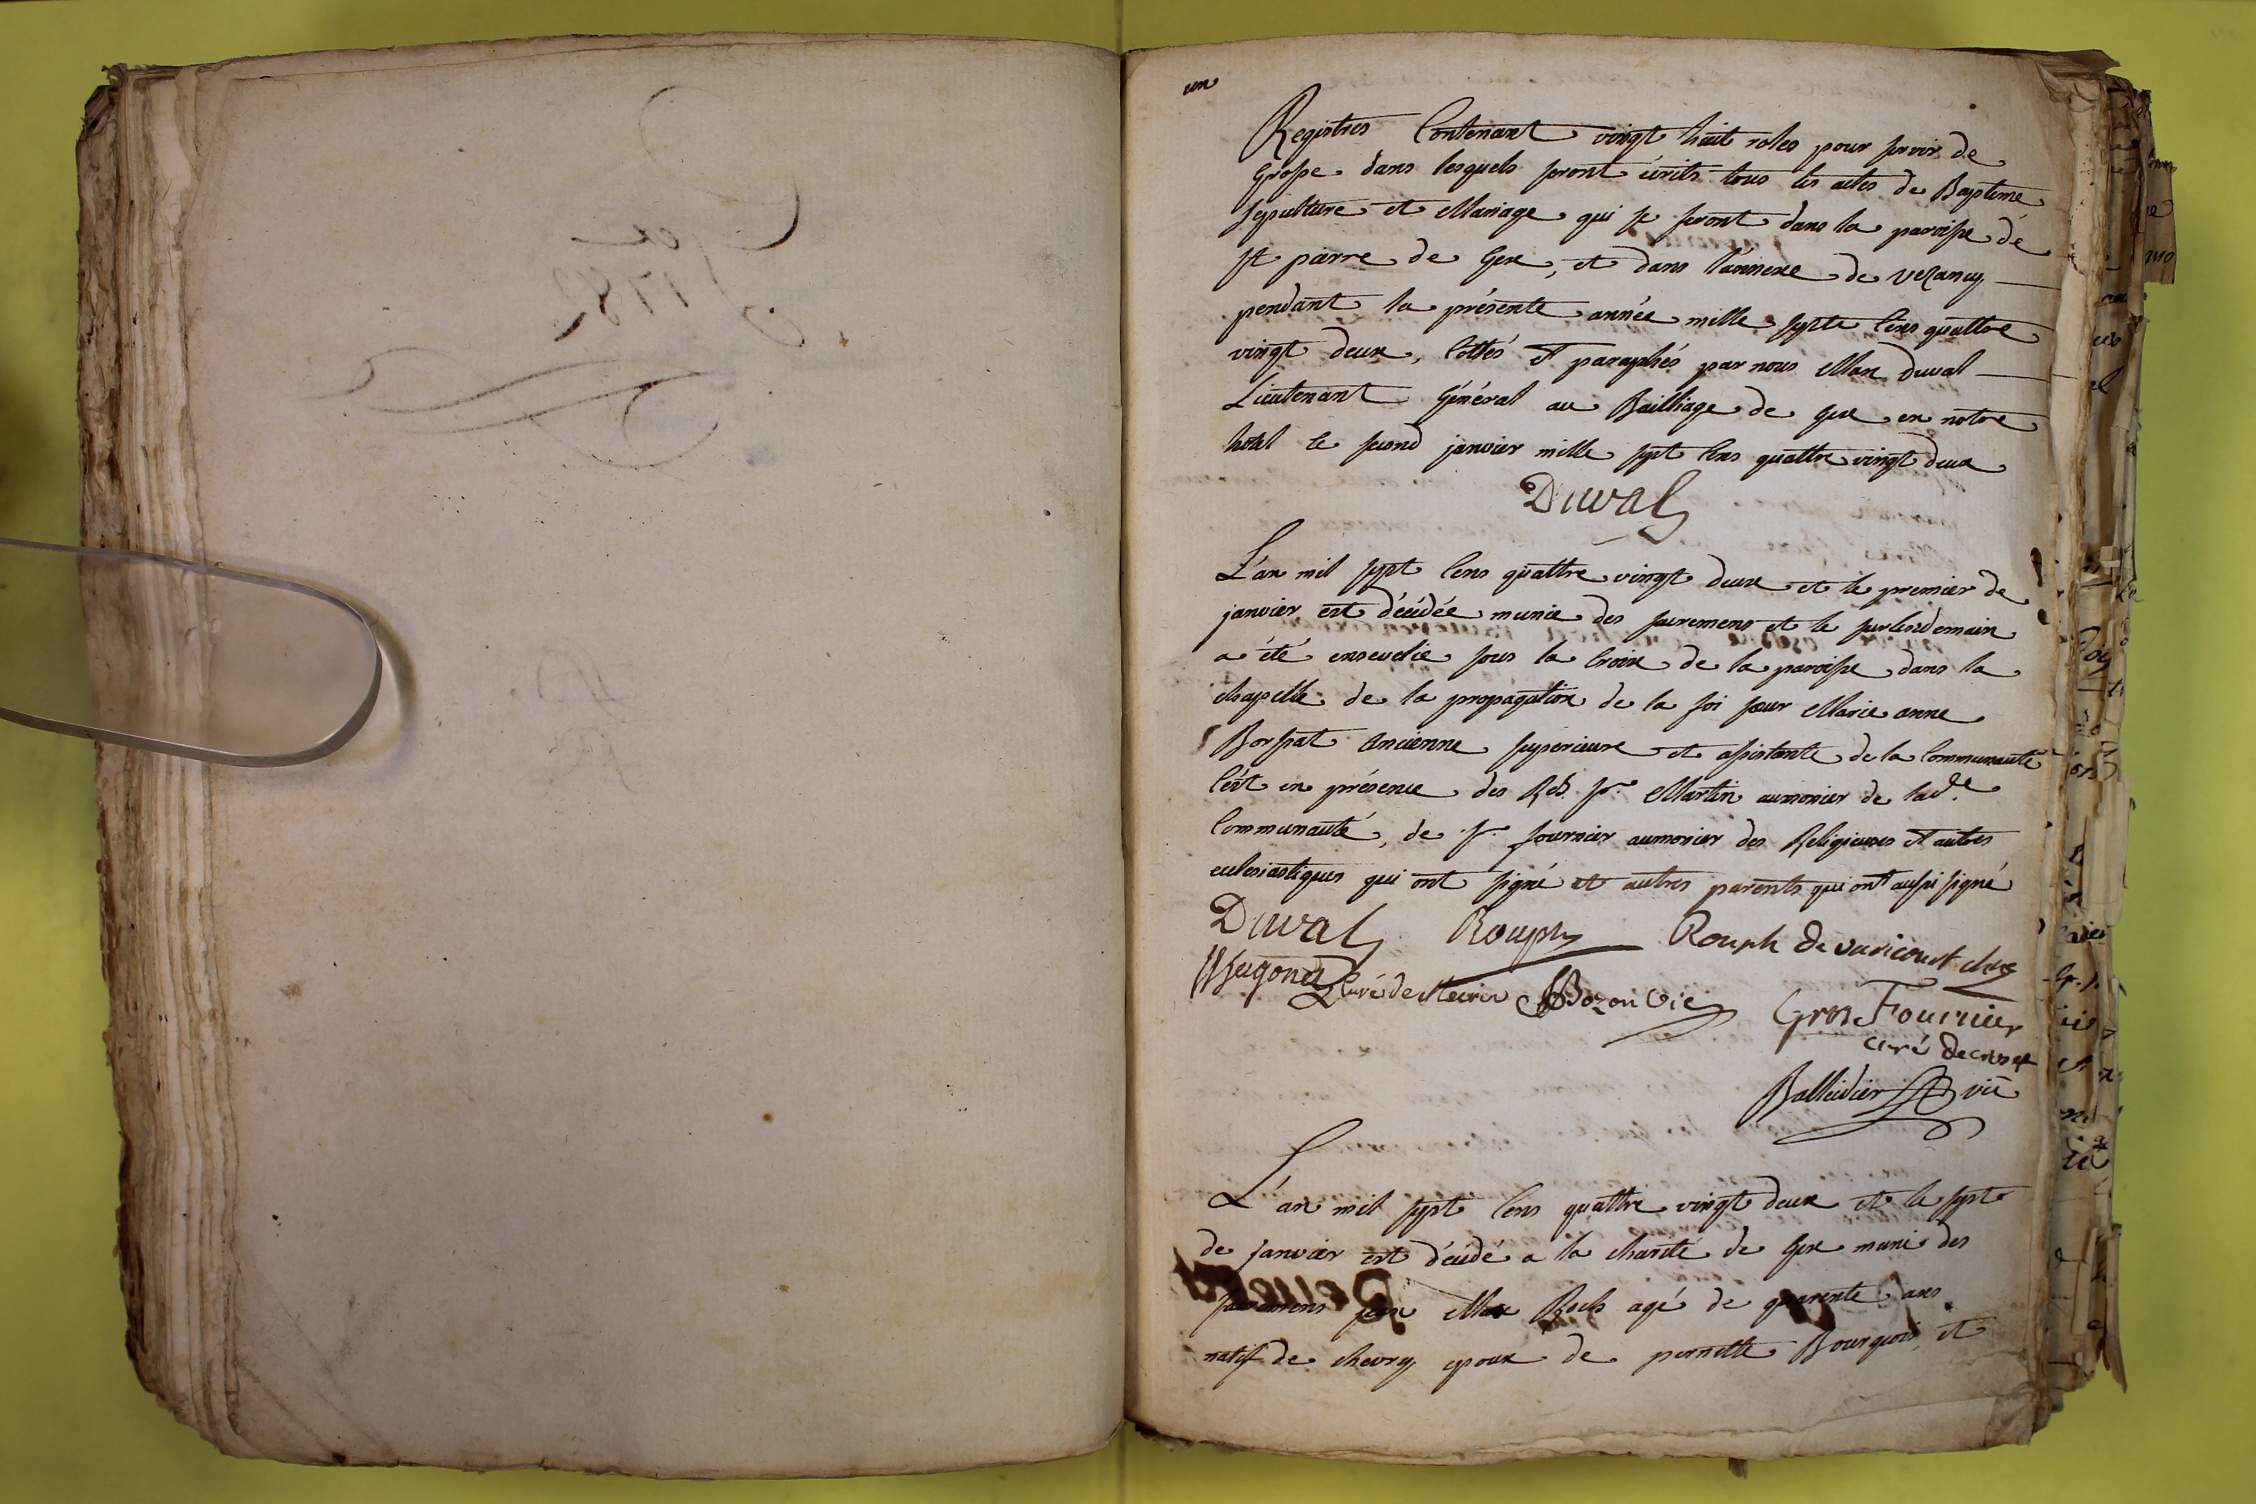 Gex
1782
un
Registres Contenant vingt huit roles pour servir de
Grosse dans lesquels seront écrits tous les actes de Baptême
sepulture et Mariage qui se feront dans la paroisse de
St pierre de Gex, et dans l'annexe de vezancy
pendant la présente année mille septe Cens quattre
vingt deux, Cottés et paraphés par nous Max duval
Lieutenant Général au Bailliage de Gex en notre
hotel le second janvier mille sept Cens quattre vingt deux
Duval
L'an mil sept Cens quattre vingt deux et le premier de
janvier est décédée munie des sacremens et le surlendemain
a été enseuelie sous la Croix de la paroisse dans la
chapelle de la propagation de la foi sœur Marie anne
Borssat ancienne superieure et assistante de la Communauté
C'est en présence des Rds. Sr. Martin aumonier de lade.
Communauté, de Sr. fournier aumonier des Religieuses et autres
eclesiastiques qui ont signé et autres parents qui ont aussi signé
Duval Rouph Rouph de varicourt
Curé de Meirin Bozon vic Gros Fournier
curé de
Balleidier vic
L'an mil sept Cens quattre vingt deux et le sept
de janvier est décédé a la charité de Gex muni des
sacremens jean Max Roch agé de quarente ans
natif de chevry epoux de pernette Bourgeois, et